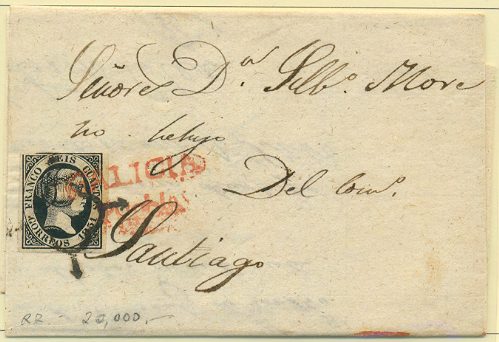 Señores D.n Selb.o More
no
Del Com.o
Santiago
FRANCO SEIS CUARTOS
CORREOS 1851
GALICIA
RR 20,000.-